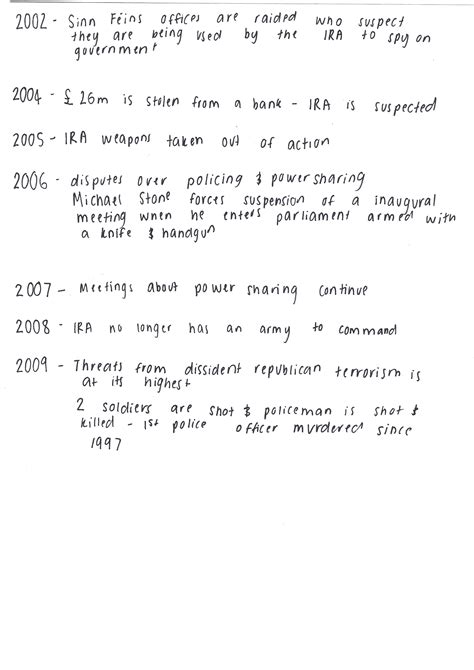 2002 - Sinn Féins offices are raided who suspect
they are being used by the IRA to spy on
government
2004 - £26m is stolen from a bank - IRA is suspected
2005 - IRA weapons taken out of action
2006 - disputes over policing & powersharing
Michael Stone forces suspension of a inaugural
meeting when he enters parliament armed with
a knife & handgun
2007 - Meetings about power sharing continue
2008 - IRA no longer has an army to command
2009 - Threats from dissident republican terrorism is
at its highest
2 soldiers are shot & policeman is shot &
killed - 1st police officer murdered since
1997